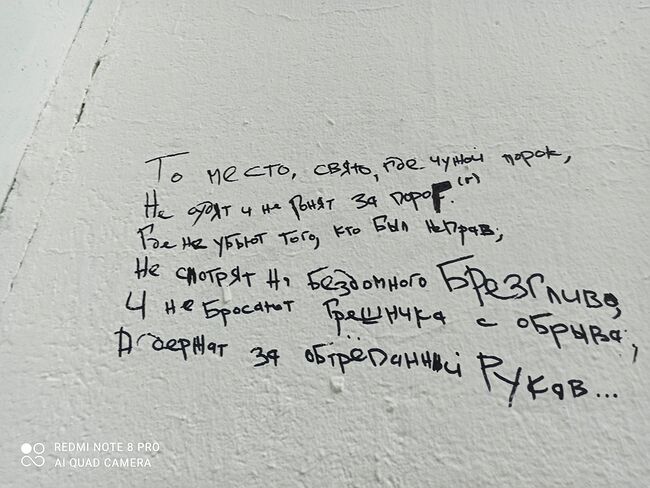 То место, свято, где чужой порок,
Не судят и не гонят за порог. (г)
Где не убьют того, кто был неправ;
Не смотрят на бездомного Брезгливо,
И не Бросают Грешника с обрыва;
А держат за обтрёпанный Рукав...
REDMI NOTE 8 PRO
AI QUAD CAMERA